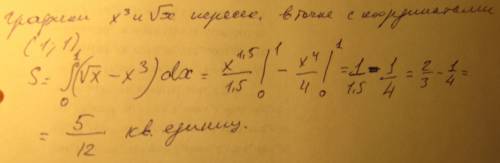 Графики x³ и √x пересек. в точке с координатами
(1,1)
S = ∫₀¹(√x - x³)dx = x^1,5/1,5 |₀¹ - x⁴/4 |₀¹ = 1/1,5 - 1/4 = 2/3 - 1/4 =
= 5/12 кв. единиц.